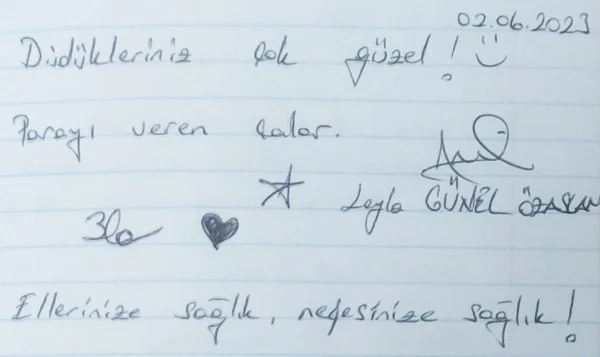 02.06.2023
Düdükleriniz çok güzel! :)
Parayı veren çalar.
Leyla GÜNEL ÖZASLAN
Ellerinize sağlık, nefesinize sağlık!